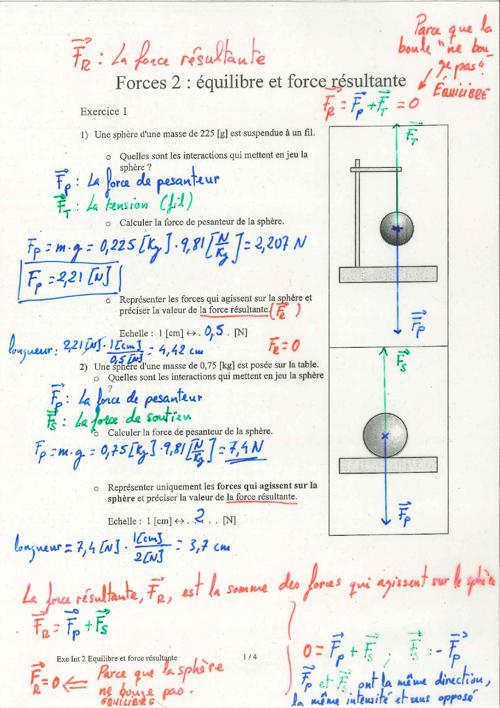 F_R : La force résultante
Parce que la
boule "ne bou-
ge pas"
ÉQUILIBRE
Forces 2 : équilibre et force résultante
F_R = F_P + F_T = 0
Exercice 1
1) Une sphère d'une masse de 225 [g] est suspendue à un fil.
o Quelles sont les interactions qui mettent en jeu la
sphère ?
F_P : La force de pesanteur
F_T : La tension (fil)
o Calculer la force de pesanteur de la sphère.
F_P = m·g = 0,225 [kg] · 9,81 [N/kg] = 2,207 N
F_P = 2,21 [N]
o Représenter les forces qui agissent sur la sphère et
préciser la valeur de la force résultante. (F_R)
Echelle : 1 [cm] ↔ . 0,5 . [N]
longueur: 2,21 [N] · 1[cm]/0,5[N] = 4,42 cm
F_R = 0
F_T
F_P
2) Une sphère d'une masse de 0,75 [kg] est posée sur la table.
o Quelles sont les interactions qui mettent en jeu la sphère
?
F_P : La force de pesanteur
F_S : La force de soutien
o Calculer la force de pesanteur de la sphère.
F_P = m·g = 0,75 [kg] · 9,81 [N/kg] = 7,4 N
o Représenter uniquement les forces qui agissent sur la
sphère et préciser la valeur de la force résultante.
Echelle : 1 [cm] ↔ . 2 . . [N]
longueur = 7,4 [N] · 1[cm]/2[N] = 3,7 cm
F_S
F_P
La force résultante, F_R, est la somme des forces qui agissent sur la sphère
F_R = F_P + F_S
0 = F_P + F_S ; F_S = - F_P
F_P et F_S ont la même direction,
la même intensité et sens opposé
Exe Int 2 Equilibre et force résultante
1 / 4
F_R = 0 ⇐ Parce que la sphère
ne bouge pas.
ÉQUILIBRE